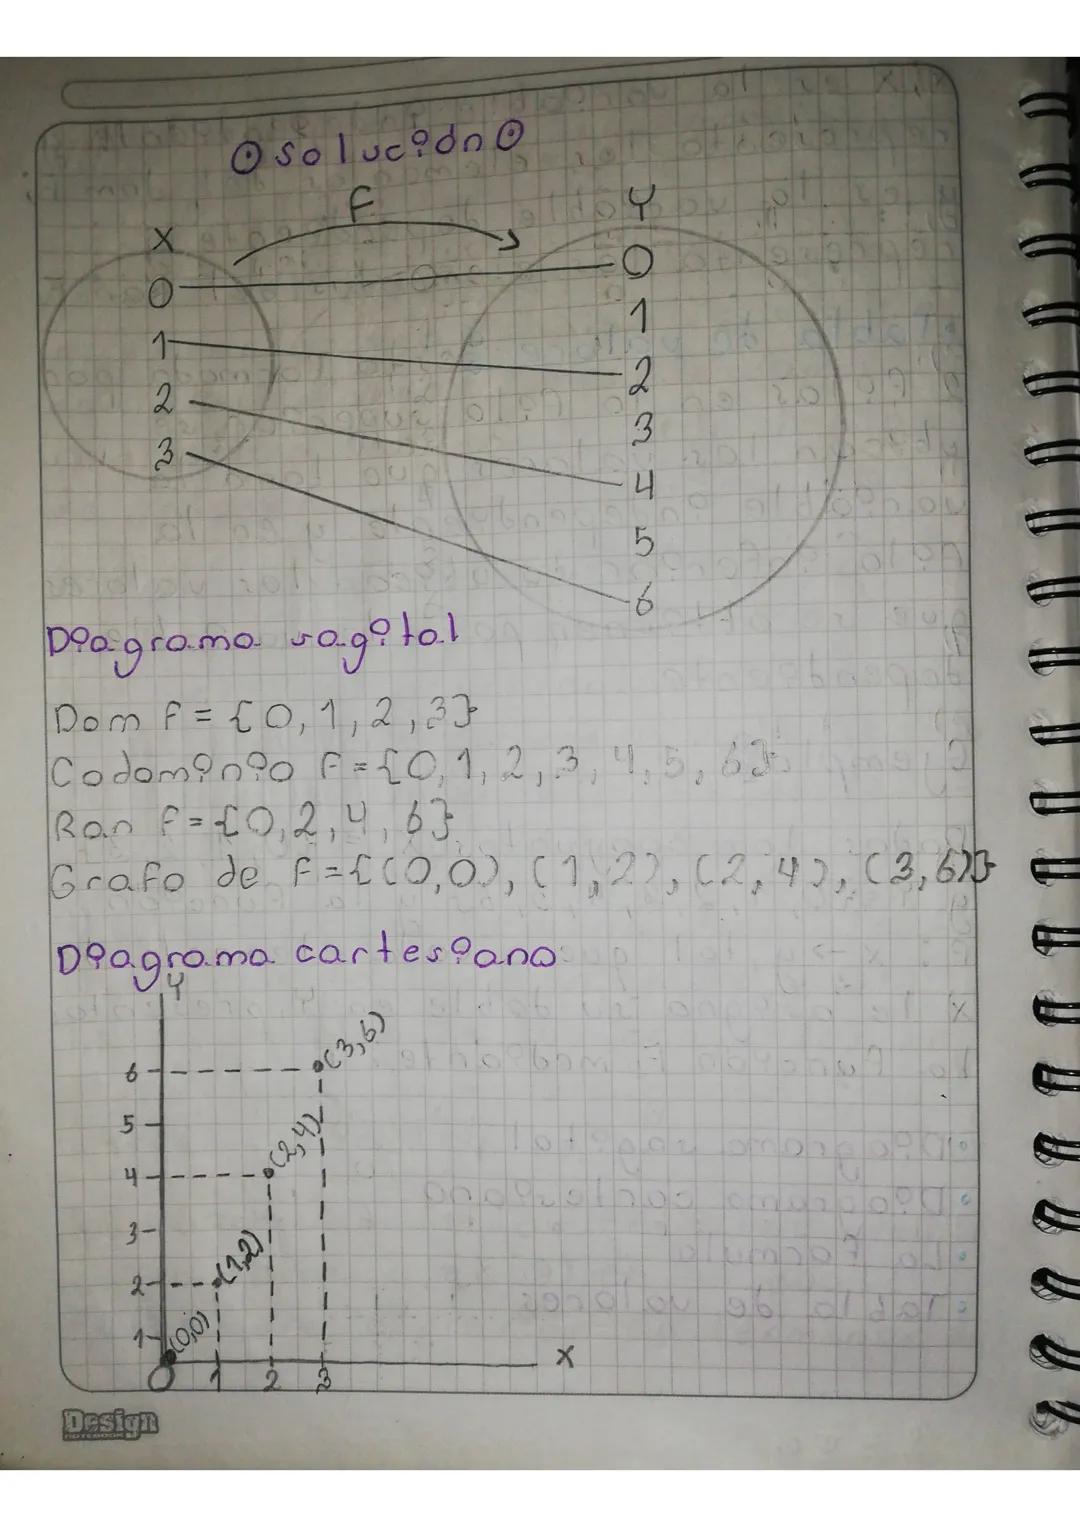 Solución
F
X Y
0 0
1 1
2 2
3 3
4
5
6
Diagrama sagital
Dom F = {0, 1, 2, 3}
Codominio F = {0, 1, 2, 3, 4, 5, 6}
Ran F = {0, 2, 4, 6}
Grafo de F = {(0,0), (1,2), (2,4), (3,6)}
Diagrama cartesiano
Y
6 (3,6)
5
4 (2,4)
3
2 (1,2)
1 (0,0)
0 1 2 3 X
Design
NOTEBOOK